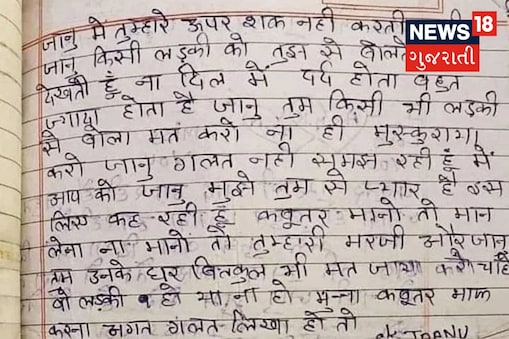 NEWS 18
ગુજરાતી
जानु मे तुम्हारे ऊपर शक नही करती
जानु किसी लड़की को तुझ से बोलते
देखती हूँ ना दिल में दर्द होता बहुत
ज्यादा होता है जानु तुम किसी भी लड़की
से बोला मत करो ना ही मुस्कुराया
करो जानु गलत नही समझ रही हूं में
आप को जानु मुझे तुम से प्यार है इस
लिए कह रही हूँ कबूतर मानो तो मान
लेना ना मानो तो तुम्हारी मरजी और जानु
तुम उनके घर बिलकुल भी मत जाया करो चाहे
वो लड़की हो या ना हो मुन्ना कबूतर माफ
करना अगत गलत लिखा हो तो
JAANU